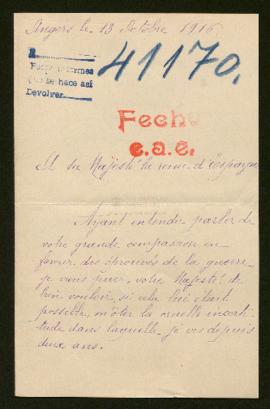 Angers le 13 Octobre 1916
41170.
se hace así
Devolver
Fecho
c.a.e.
A sa Majesté la reine d'Espagne
Ayant entendu parler de
votre grande compassion en
faveur des éprouvés de la guerre
je viens prier, votre Majesté! de
bien vouloir, si cela lui était
possible, m'ôter la cruelle incerti
tude dans laquelle je vis depuis
deux ans.